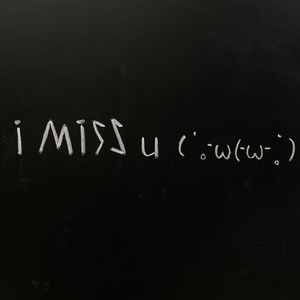 i MISS u (´。-ω(-ω-｡`)